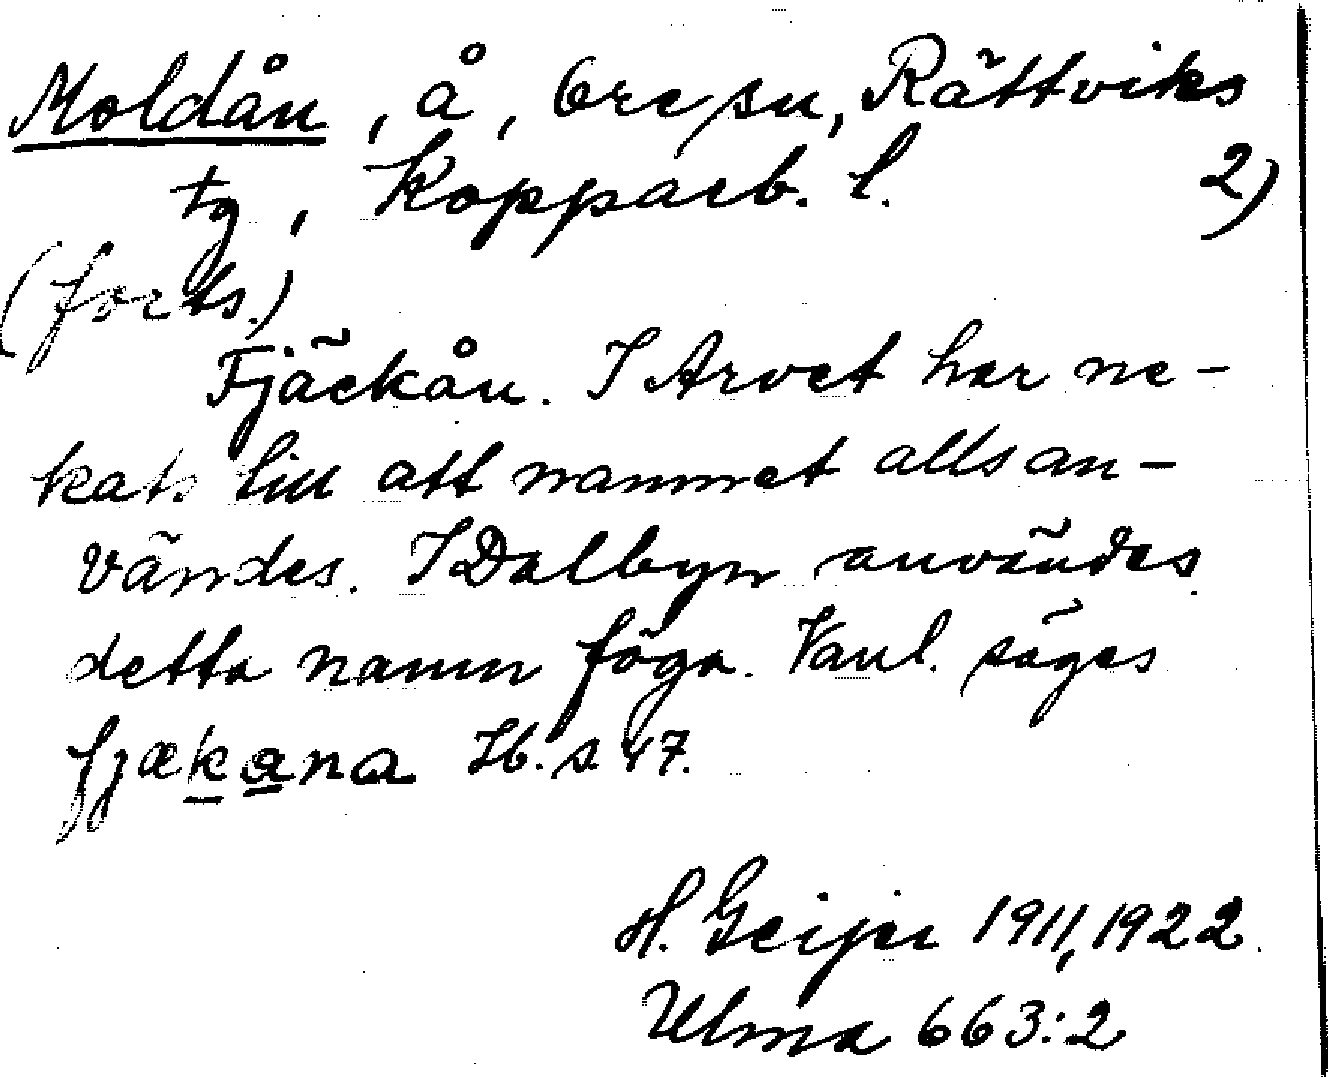 Moldån, å, Ore sn, Rättviks
tg, Kopparb. l. 2)
(forts.)
Fjäckån. I Arvet har ne-
kats till att namnet alls an-
vändes. I Dalbyn användes
detta namn föga. Vanl. säges
fjækana Ib. s. 47.
H. Geijer 1911, 1922
Ulma 663:2